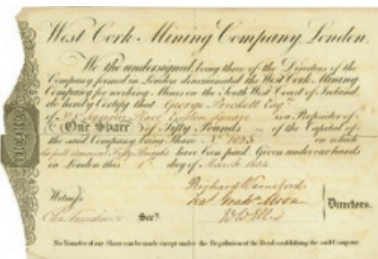 West Cork Mining Company, London.
We the undersigned, being three of the Directors of the
Company formed in London denominated the West Cork Mining
Company for working Mines on the South West Coast of Ireland,
do hereby Certify that George Prickett Esqr.
of Seymour Place Euston Square is a Proprietor of
One Share of Fifty Pounds of the Capital of
the said Company being Share No. 1033 on which
the full amount Fifty Pounds have been paid. Given under our hands
in London this day of March 1834
Witness
Secy.
Directors.
No Transfer of any Share can be made except under the Regulation of the Deed establishing the said Company